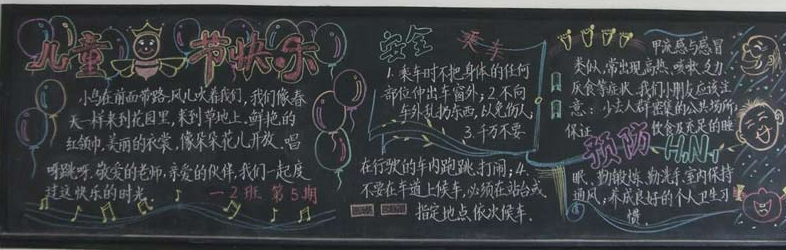 儿童节快乐
小鸟在前面带路,风儿吹着我们,我们像春
天一样来到花园里,来到草地上,鲜艳的
红领巾,美丽的衣裳,像朵朵花儿开放。唱
呀跳呀,敬爱的老师,亲爱的伙伴,我们一起度
过这快乐的时光
一2班 第5期
安全
乘车
1.乘车时不把身体的任何
部位伸出车窗外;2.不向
车外乱扔东西,以免伤人;
3.千万不要
在行驶的车内跑跳、打闹;4.
不要在车道上候车,必须在站台或
指定地点依次候车.
甲流感与感冒
类似,常出现高热、咳嗽、乏力
厌食等症状,我们小朋友应该注
意:少去人群密集的公共场所,
保证 饮食及充足的睡
预防 H1N1
眠、勤锻炼、勤洗手,室内保持
通风;养成良好的个人卫生习
惯.